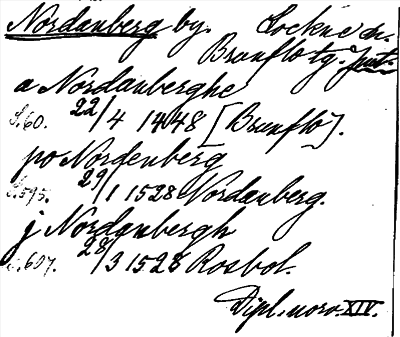 Nordanberg by. Lockne sn.
Brunflo tg. Jmt.
a Nordanberghe
S. 60. 22/4 1448 [Brunflo].
po Nordenberg
S. 595. 29/1 1528 Nordanberg.
j Nordanbergh
S. 607. 28/3 1528 Rosbol.
Dipl. norv. XIV.